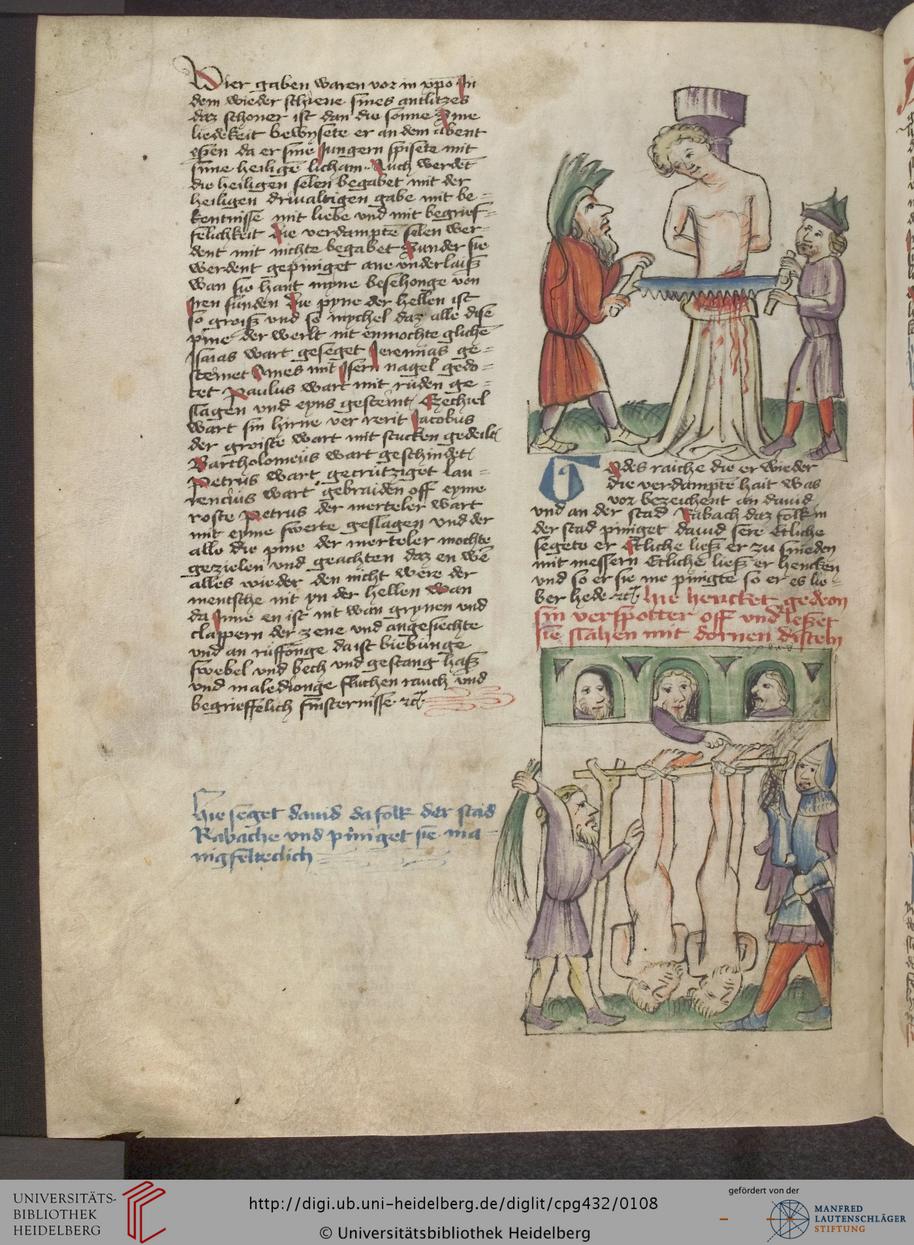 Vier gaben waren vor in xpo In
dem wieder schiene sines antlitzes
daz schoner ist dan die sonne Sine
liedekeit bewysete er an dem abent
essen da er sine Jungern spisete mit
sime heilige licham Auch werdet
die heiligen selen begabet mit der
heiligen drivaltigen gabe mit be=
kentnisse mit liebe vnd mit begrif=
felichkeit Die verdampte selen wer=
dent mit nichte begabet Sunder sie
werdent gepiniget ane vnderlaiß
wan sie hant myne besehonge von
Iren sunden Die pyne der hellen ist
so groiß vnd so mychel daz alle dise
pine der werlt nit enmochte gliche
Isaias wart geseget Jeremias ge=
steinet Ames mit Isern nagel gedo=
tet Paulus wart mit ruden ge=
slagen vnd eyns gesteint Ezechiel
wart sin hirne ver rerit Jacobus
der groiste wart mit stucken gedeilt
Bartholomeus wart geschindet
Petrus wart gecrutziget lau=
rencius wart gebraiden off eyme
roste Petrus der merteler wart
mit eyme swerte geslagen vnd der
alle die pine der merteler mochte
gezielen vnd geachten daz en we
alles wieder den nicht were der
mentsche nit yn der hellen Wan
da Inne en ist nit wan grynen vnd
clappern der zene vnd angesiechte
vnd an ruffonge da ist biebunge
swebel vnd bech vnd gestang haß
vnd maledionge fluchen rauch vnd
begrieffelich finsternisse etc
Hie seget dauid da folk der stad
Rabache vnd piniget sie ma=
nigfelteclich
Godes raiche die er wieder
die verdampte hait was
vor bezeichent an dauid
vnd an der stad Rabach daz folk in
der stad piniget dauid sere Etliche
segete er Etliche ließ er zu snieden
mit messern Etliche ließ er hencken
vnd so er sie me pinigte so er es lie=
ber hede etc Hie hencket gedeon
sin verspotter off vnd lesset
sie slahen mit dornen disteln
UNIVERSITÄTS-
BIBLIOTHEK
HEIDELBERG
http://digi.ub.uni-heidelberg.de/diglit/cpg432/0108
© Universitätsbibliothek Heidelberg
gefördert von der
MANFRED
LAUTENSCHLÄGER
STIFTUNG